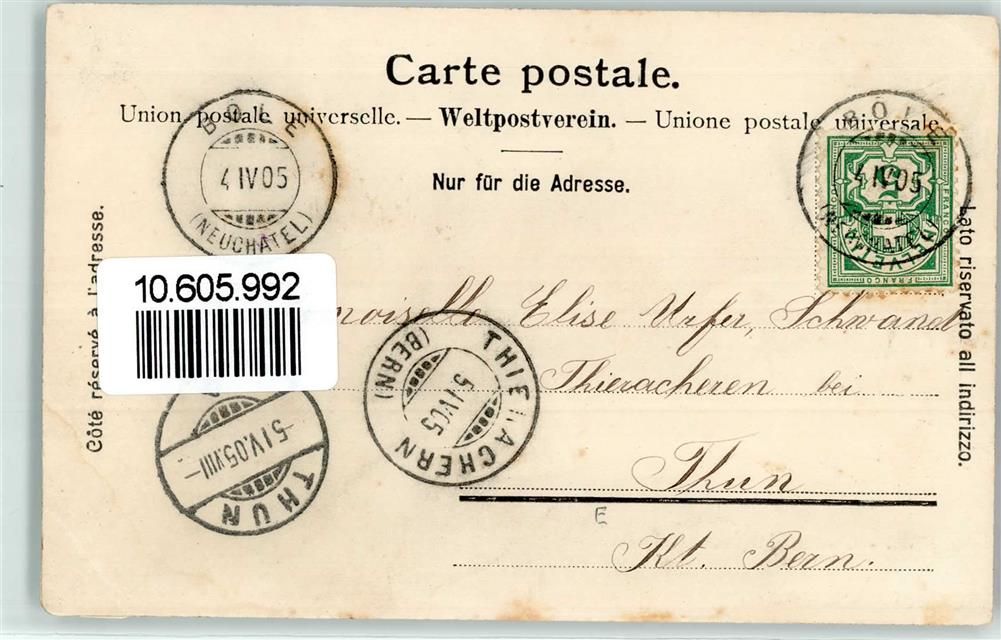 Carte postale.
Union postale universelle. — Weltpostverein. — Unione postale universale
Nur für die Adresse.
Côté réservé à l'adresse.
Lato riservato all indirizzo.
BÔLE
4 IV 05
(NEUCHATEL)
BÔLE
4 IV 05
(NEUCHATEL)
HELVETIA
FRANCO
10.605.992
moiselle Elise Urfer, Schwand
Thieracheren bei
Thun
Kt. Bern.
THIERACHERN
5 IV 05
(BERN)
-5.IV.05.VIII-
THUN
E